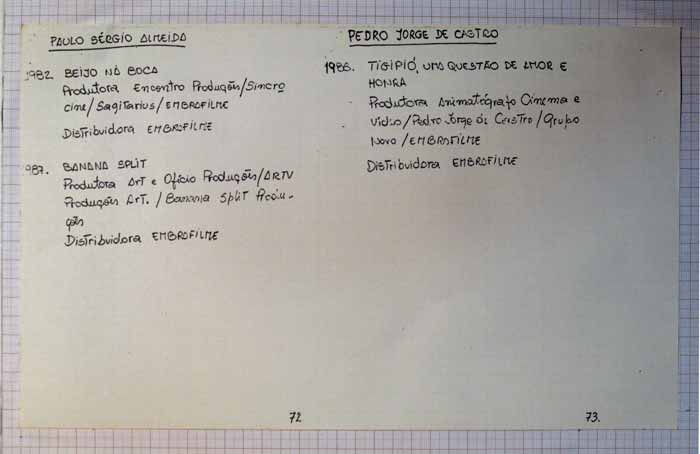 PAULO SÉRGIO ALMEIDA
1982. BEIJO NA BOCA
Produtora Encontro Produções/Sincro
cine/Sagitarius/EMBROFILME
Distribuidora EMBROFILME
987. BANANA SPLIT
Produtora Art e Ofício Produções/ARTV
Produções Art. / Banana Split Produ-
ções
Distribuidora EMBROFILME
72
PEDRO JORGE DE CASTRO
1986. TIGIPIÓ, UMA QUESTÃO DE AMOR E
HONRA
Produtora Animatógrafo Cinema e
Vídeo/Pedro Jorge de Castro/Grupo
Novo/EMBROFILME
Distribuidora EMBROFILME
73.